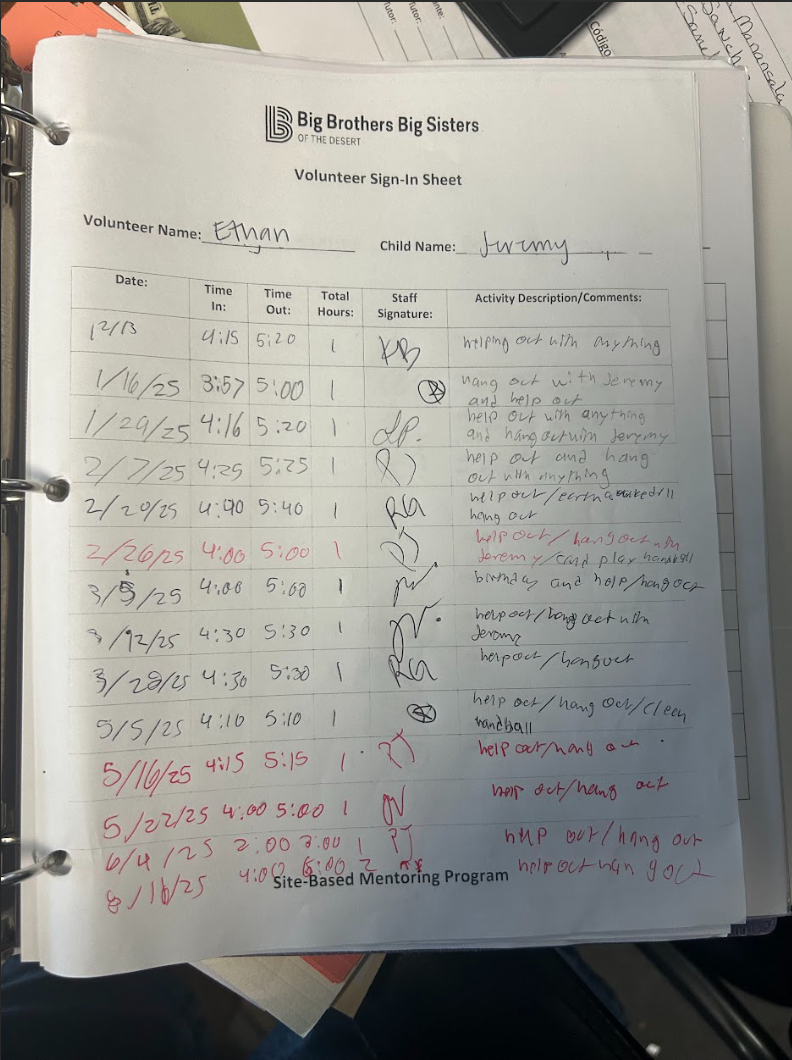 Código
Manansala
Big Brothers Big Sisters
OF THE DESERT
Volunteer Sign-In Sheet
Volunteer Name: Ethan Child Name: Jeremy
Date: Time In: Time Out: Total Hours: Staff Signature: Activity Description/Comments:
12/13 4:15 5:20 1 KB helping out with anything
1/16/25 3:57 5:00 1 hang out with Jeremy
and help out
1/29/25 4:16 5:20 1 LP. help out with anything
and hang out with Jeremy
2/7/25 4:25 5:25 1 help out and hang
out with anything
2/20/25 4:40 5:40 1 RG help out/
hang out
2/26/25 4:00 5:00 1 help out/hang out with
Jeremy/and play handball
3/5/25 4:00 5:00 1 birthday and help/hang out
3/12/25 4:30 5:30 1 help out/hang out with
Jeremy
3/28/25 4:30 5:30 1 RG help out/hang out
5/5/25 4:10 5:10 1 help out/hang out/clean
handball
5/16/25 4:15 5:15 1 help out/hang out
5/22/25 4:00 5:00 1 help out/hang out
6/4/25 2:00 3:00 1 help out/hang out
8/11/25 4:00 6:00 2 help out hang out
Site-Based Mentoring Program